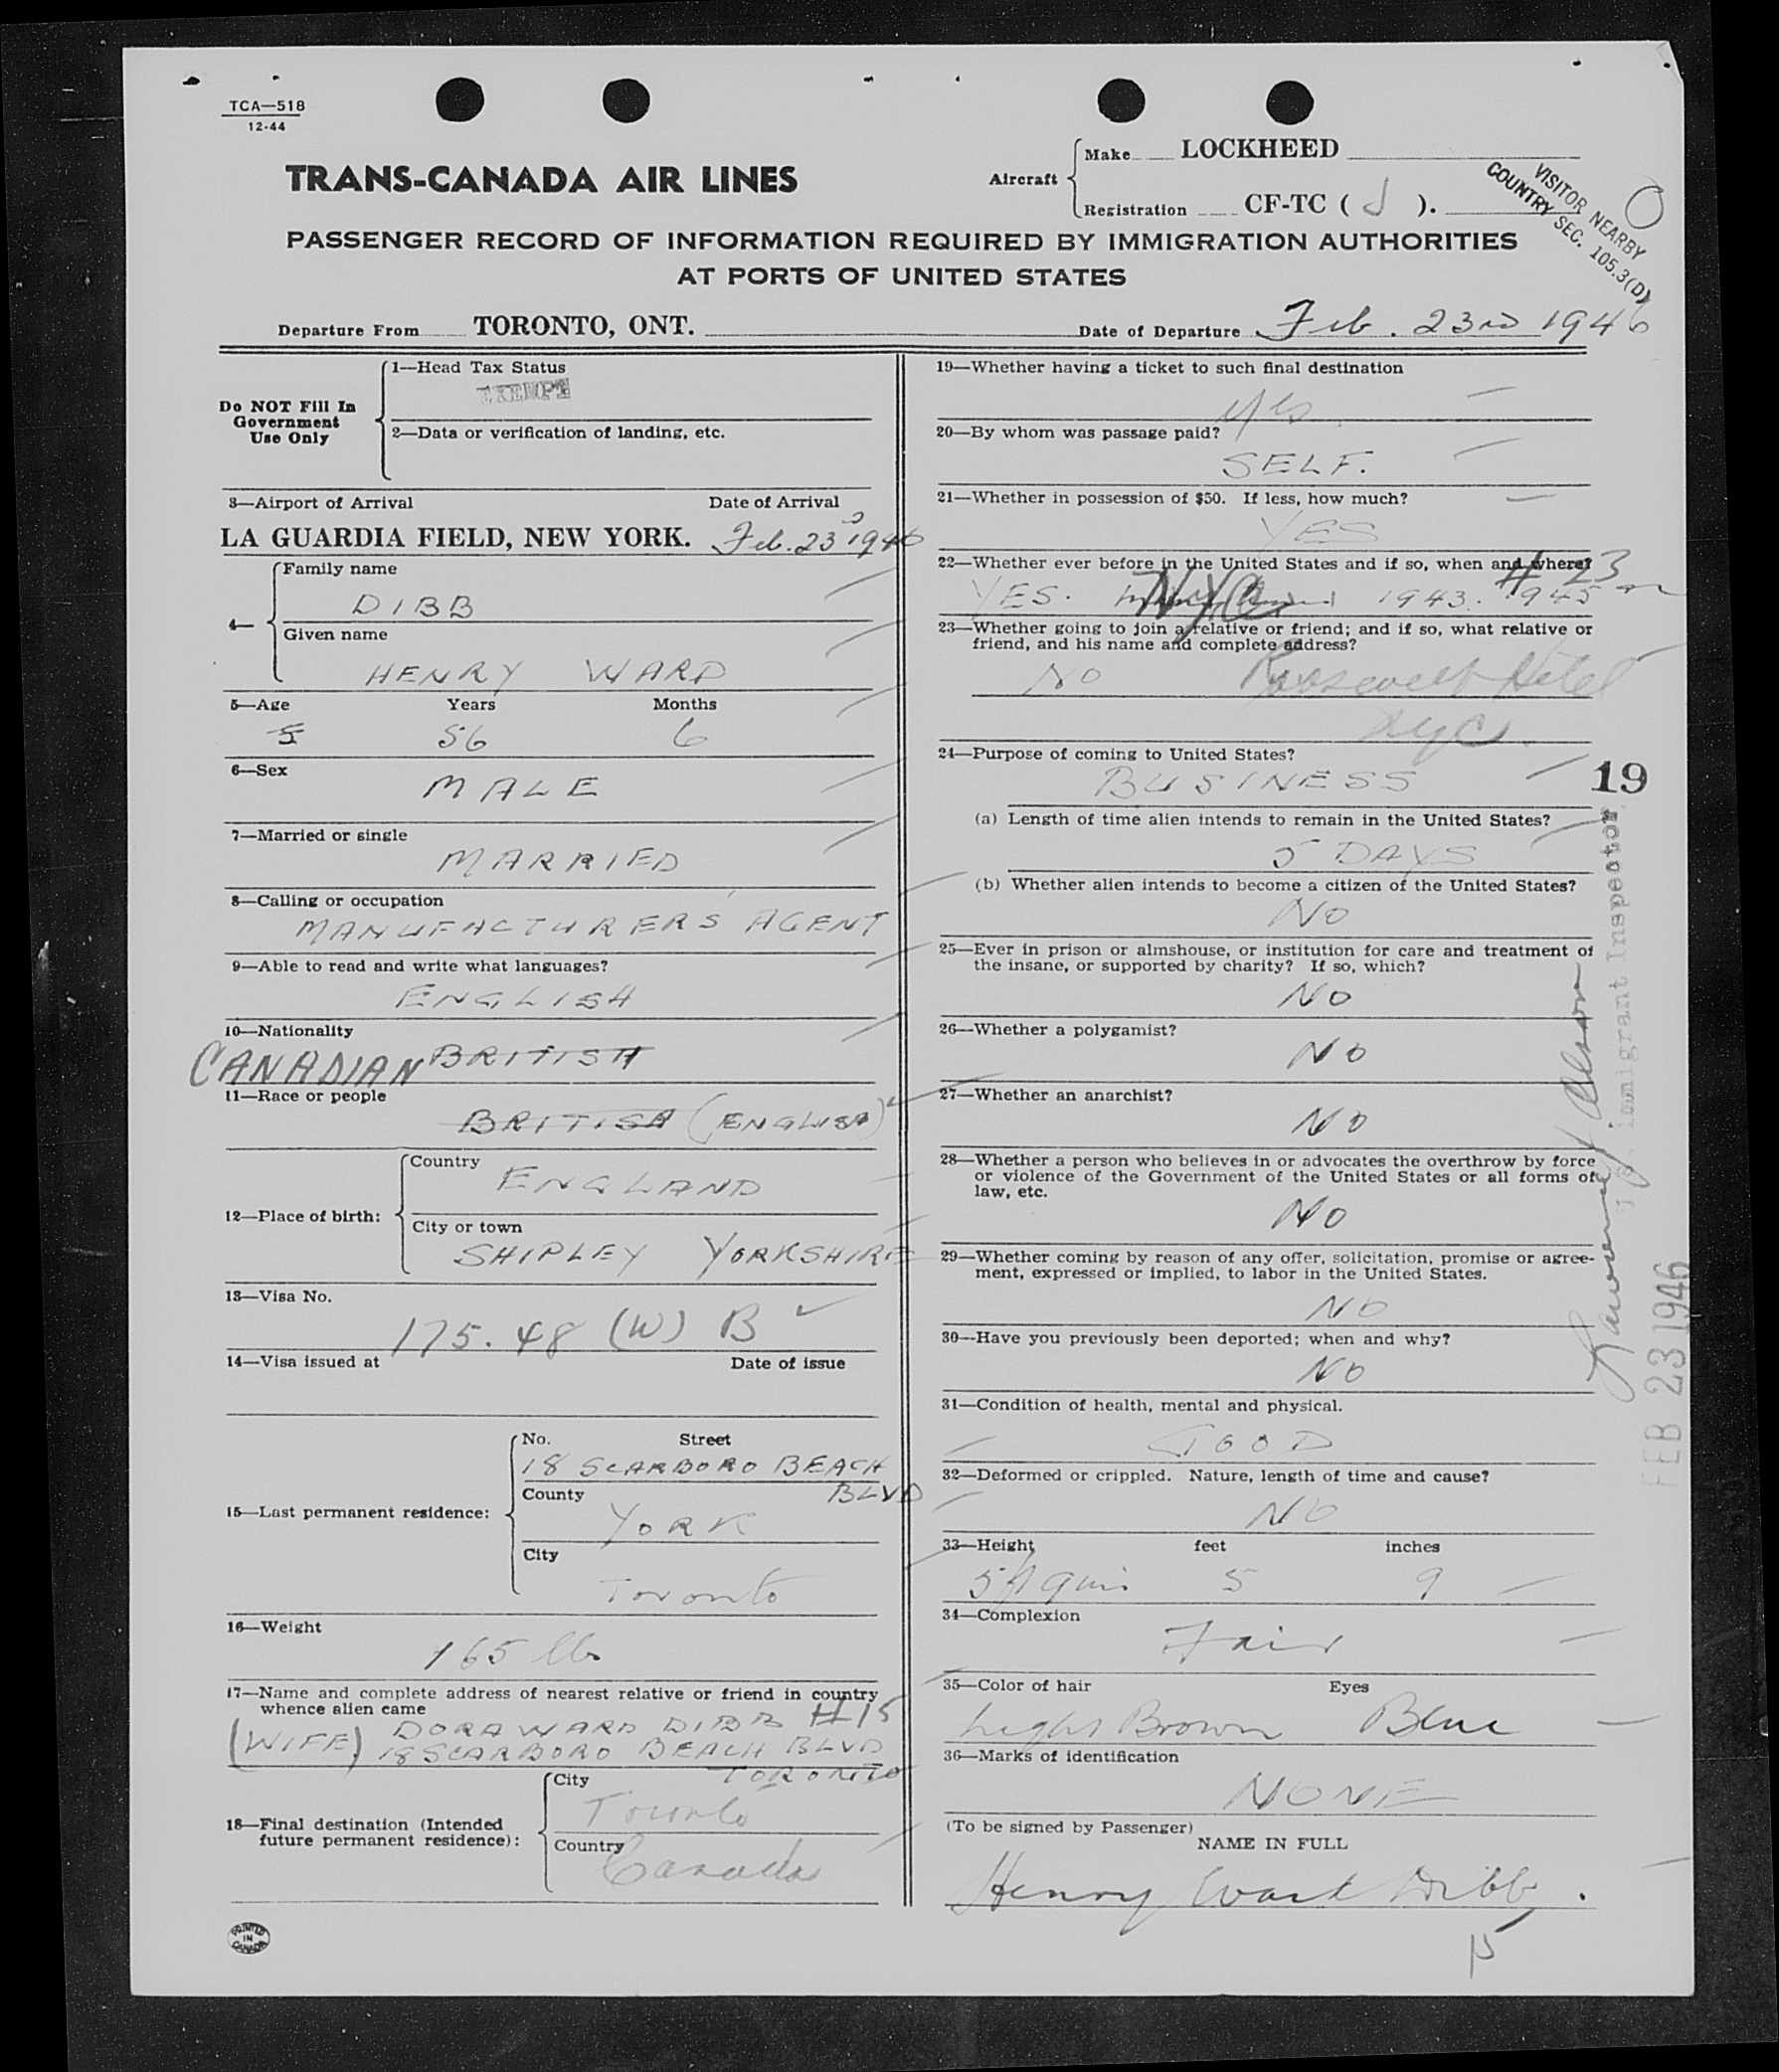 TCA—518
12-44
TRANS-CANADA AIR LINES
Aircraft
Make LOCKHEED
Registration CF-TC ( J ).
VISITOR NEARBY
COUNTRY SEC. 105.3(D)
PASSENGER RECORD OF INFORMATION REQUIRED BY IMMIGRATION AUTHORITIES
AT PORTS OF UNITED STATES
Departure From TORONTO, ONT. Date of Departure Feb. 23rd 1946
Do NOT Fill In
Government
Use Only
1—Head Tax Status
EXEMPT
2—Data or verification of landing, etc.
3—Airport of Arrival Date of Arrival
LA GUARDIA FIELD, NEW YORK. Feb. 23 1946
4—
Family name
DIBB
Given name
HENRY WARD
5—Age Years Months
5 56 6
6—Sex
MALE
7—Married or single
MARRIED
8—Calling or occupation
MANUFACTURERS' AGENT
9—Able to read and write what languages?
ENGLISH
10—Nationality
CANADIAN BRITISH
11—Race or people
BRITISH (ENGLISH)
12—Place of birth:
Country
ENGLAND
City or town
SHIPLEY YORKSHIRE
13—Visa No.
175.48 (W) B
14—Visa issued at Date of issue
15—Last permanent residence:
No. Street
18 SCARBORO BEACH
BLVD
County
YORK
City
Toronto
16—Weight
165 lb
17—Name and complete address of nearest relative or friend in country
whence alien came
#15
(WIFE) DORA WARD DIBB
18 SCARBORO BEACH BLVD
TORONTO
18—Final destination (Intended
future permanent residence):
City
Toronto
Country
Canada
PRINTED
IN
CANADA
19—Whether having a ticket to such final destination
yes
20—By whom was passage paid?
SELF.
21—Whether in possession of $50. If less, how much?
YES
22—Whether ever before in the United States and if so, when and where?
# 23
YES. NYC 1943. 1945
23—Whether going to join a relative or friend; and if so, what relative or
friend, and his name and complete address?
NO Roosevelt Hotel
NYC.
24—Purpose of coming to United States?
BUSINESS
19
(a) Length of time alien intends to remain in the United States?
5 DAYS
(b) Whether alien intends to become a citizen of the United States?
NO
25—Ever in prison or almshouse, or institution for care and treatment of
the insane, or supported by charity? If so, which?
NO
26—Whether a polygamist?
NO
27—Whether an anarchist?
NO
28—Whether a person who believes in or advocates the overthrow by force
or violence of the Government of the United States or all forms of
law, etc.
NO
29—Whether coming by reason of any offer, solicitation, promise or agree-
ment, expressed or implied, to labor in the United States.
NO
30—Have you previously been deported; when and why?
NO
31—Condition of health, mental and physical.
GOOD
32—Deformed or crippled. Nature, length of time and cause?
NO
33—Height feet inches
5 ft 9 ins 5 9
34—Complexion
Fair
35—Color of hair Eyes
Light Brown Blue
36—Marks of identification
NONE
(To be signed by Passenger)
NAME IN FULL
Henry Ward Dibb.
15
Immigrant Inspector
FEB 23 1946